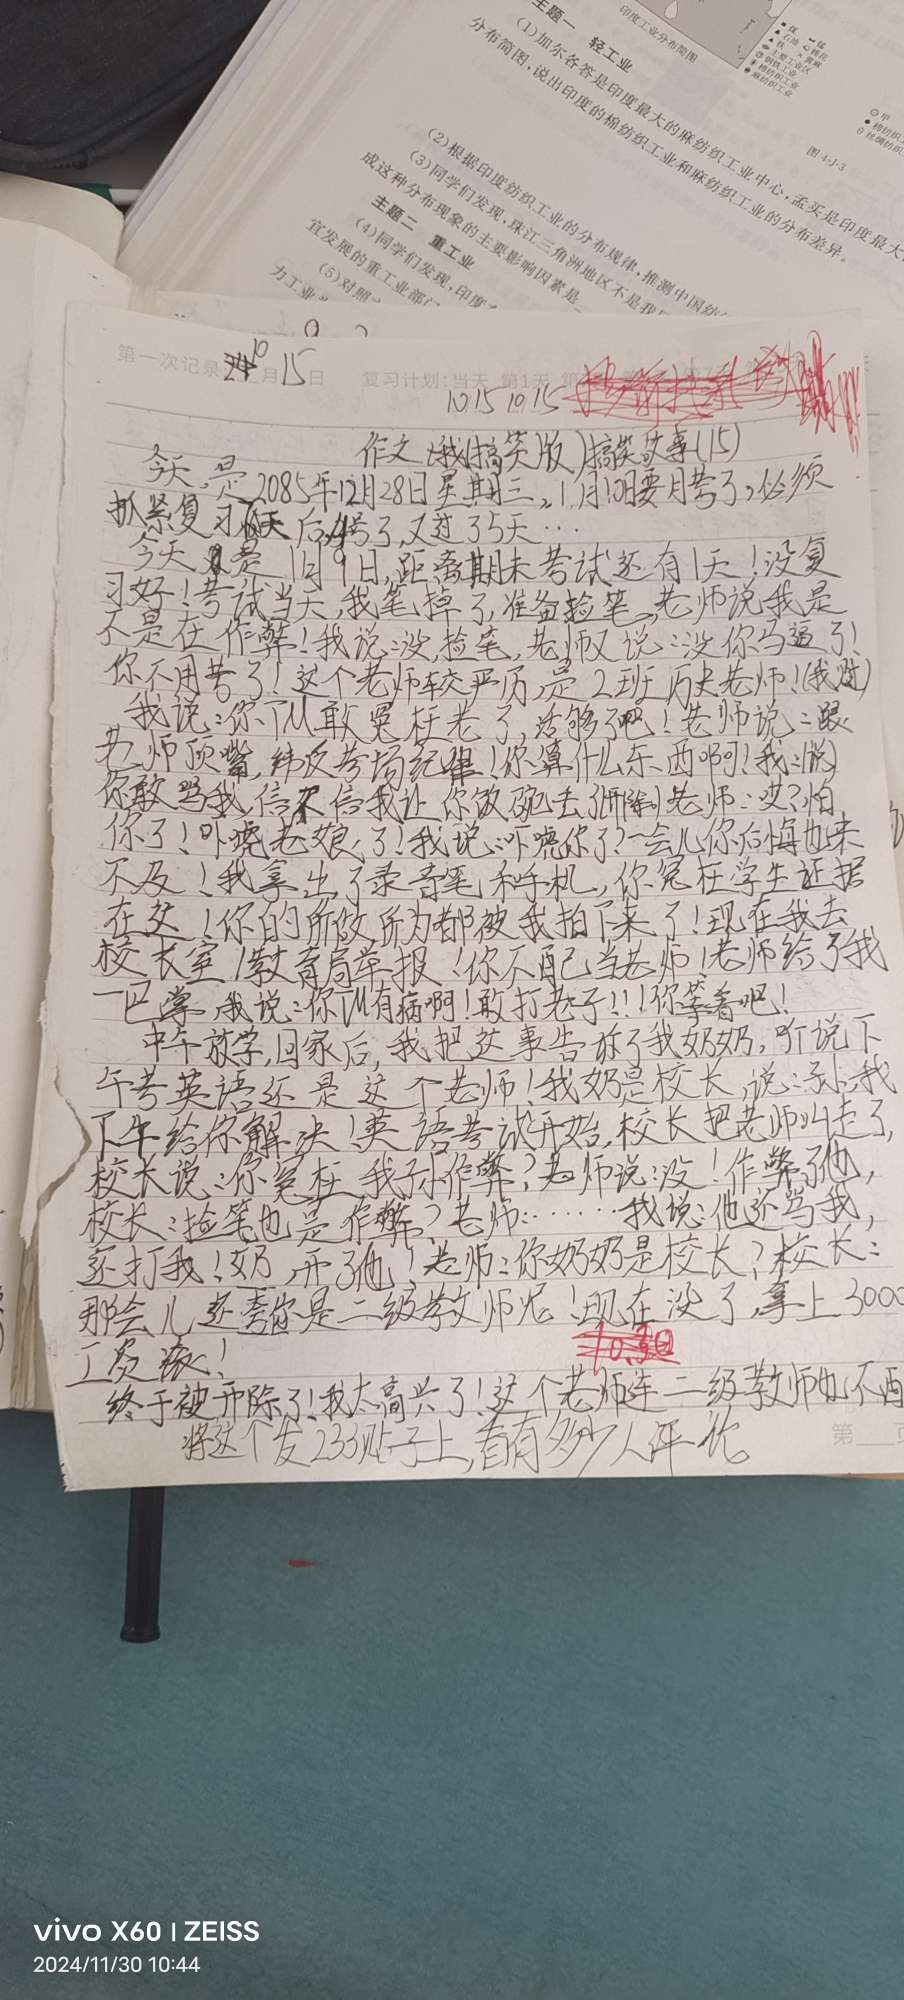 主题一 轻工业
(1)加尔各答是印度最大的麻纺织工业中心,孟买是印度最大
分布简图,说出印度的棉纺织工业和麻纺织工业的分布差异。
印度工业分布简图
图4-J-3
(2)根据印度纺织工业的分布规律,推测中国纺
(3)同学们发现,珠江三角洲地区不是我
成这种分布现象的主要影响因素是
主题二 重工业
(4)同学们发现,印度
宜发展的重工业部门
(5)对照
力工业
第一次记录 10月15日 复习计划:当天 第1天
10.15 10.15
作文:我(搞笑版)搞笑故事(15)
今天,是2085年12月28日星期三,1月10日要月考了,必须
抓紧复习 天后,考了,又过了5天…
今天是1月9日,距离期末考试还有1天!没复
习好!考试当天,我笔掉了,准备捡笔,老师说我是
不是在作弊!我说:没,捡笔,老师又说:没你马逼了!
你不用考了!这个老师较严历,是2班历史老师!
我说:你TM敢冤枉老子,活够了吧!老师说:跟
老师顶嘴,纬反考场纪律!你算什么东西啊!我:(说)
你敢骂我,信不信我让你饭碗丢了(开除)老师:哎?怕
你了!吓唬老娘了!我说:吓唬你了?一会儿你后悔也来
不及!我拿出了录音笔和手机,你冤枉学生证据
在这!你的所做所为都被我拍下来了!现在我去
校长室!教育局举报!你不配当老师!老师给了我
一巴掌,我说:你TM有病啊!敢打老子!!!你等着吧!
中午放学,回家后,我把这事告诉了我奶奶,听说下
午考英语还是这个老师!我奶是校长,说:孙,我
下午给你解决!英语考试开始,校长把老师叫走了,
校长说:你冤枉我孙作弊?老师说:没!作弊了他,
校长:捡笔也是作弊?老师:……我说:他还骂我,
还打我!奶,开了他!老师:你奶奶是校长?校长:
那会儿还夸你是二级教师呢!现在没了,拿上3000
工资滚!
终于被开除了!我太高兴了!这个老师连二级教师也不配
将这个发233贴子上,看有多少人评论
第 页
vivo X60 | ZEISS
2024/11/30 10:44